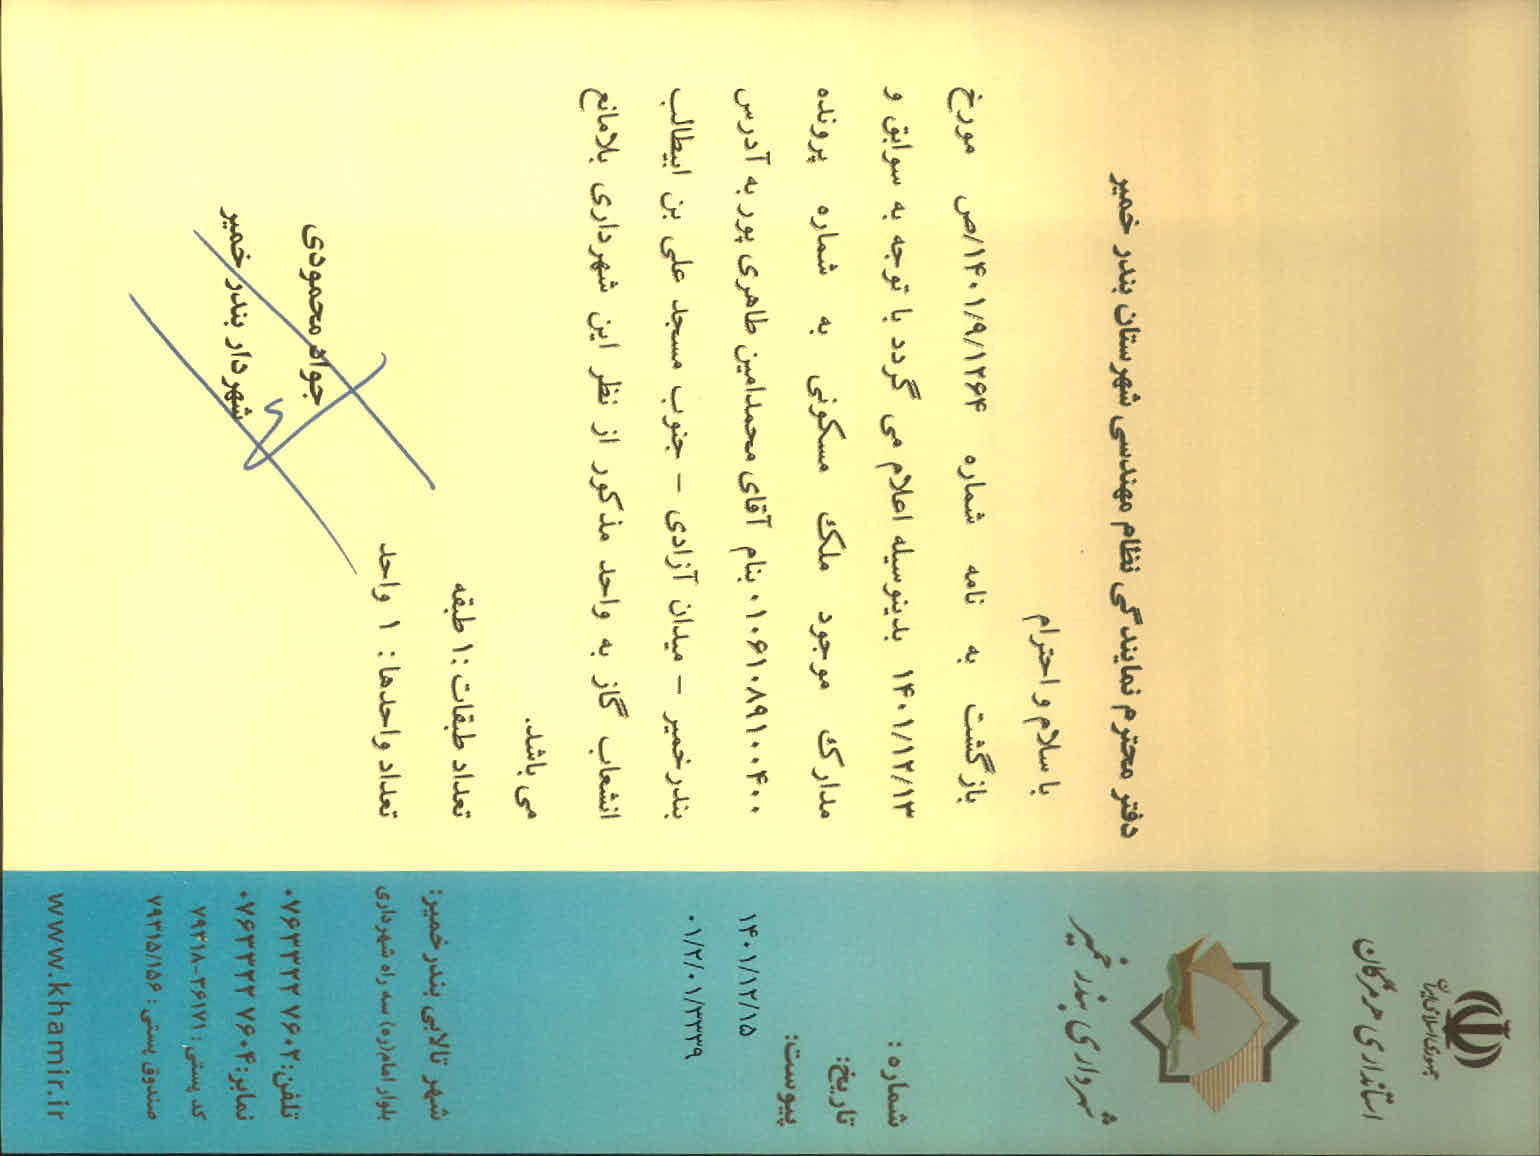 جمهوری اسلامی ایران
استانداری هرمزگان
شهرداری بندر خمیر
شماره :
تاریخ:
پیوست:
۱۴۰۱/۱۲/۱۵
۰۱/۲/۰۱/۳۳۳۹
دفتر محترم نمایندگی نظام مهندسی شهرستان بندر خمیر
با سلام و احترام
بازگشت به نامه شماره ۱۴۰۱/۹/۱۲۶۴/ص مورخ
۱۴۰۱/۱۲/۱۳ بدینوسیله اعلام می گردد با توجه به سوابق و
مدارک موجود ملک مسکونی به شماره پرونده
۰۱۰۶۱۰۸۹۱۰۰۴۰۰ بنام آقای محمدامین طاهری پور به آدرس
بندرخمیر – میدان آزادی – جنوب مسجد علی بن ابیطالب
انشعاب گاز به واحد مذکور از نظر این شهرداری بلامانع
می باشد.
تعداد طبقات :۱ طبقه
تعداد واحدها: ۱ واحد
جواد محمودی
شهردار بندر خمیر
شهر تالابی بندرخمیر:
بلوار امام(ره) سه راه شهرداری
تلفن: ۰۷۶۳۳۲۲ ۷۶۰۲
نمابر: ۰۷۶۳۳۲۲ ۷۶۰۴
کد پستی : ۷۹۳۱۸-۳۶۱۷۱
صندوق پستی : ۷۹۳۱۵/۱۵۶
www.khamir.ir